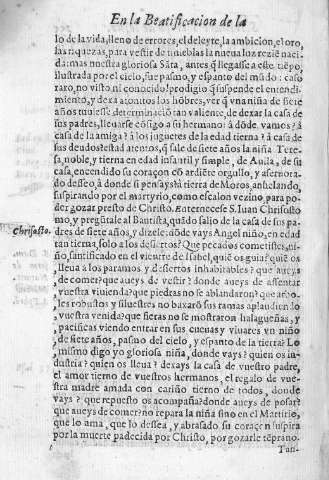 En la Beatificacion de la
lo de la vida, lleno de errores, el deleyte, la ambicion, el oro,
las riquezas, para vestir de tinieblas la nueva luz rezié naci-
da: mas nuestra gloriosa Sãta, antes q̃ llegasse a este tiẽpo,
ilustrada por el cielo, fue pasmo, y espanto del mũdo: caso
raro, no visto, ni conocido! prodigio q̃ suspende el entendi-
miento, y dexa atonitos los hõbres, ver q̃ vna niña de siete
años tuuiesse determinaciõ tan valiente, de dexar la casa de
sus padres, lleuarse cõsigo a su hermano: à dõde vamos? à
casa de la amiga? à los juguetes de la edad tierna? à casa de
sus deudos? estad atentos, q̃ sale de siete años la niña Tere-
sa, noble, y tierna en edad infantil y simple, de Auila, de su
casa, encendido su coraçon cõ ardiẽte orgullo, y afernora-
do desseo, à donde si pensays? à tierra de Moros, anhelando,
suspirando por el martyrio, como escalon vezino para po-
der gozar presto de Christo. Enternecese S. Iuan Chrisosto
Chrisosto.
mo, y pregũtale al Bautista, quãdo salio de la casa de sus pa-
dres de siete años, y dizele: dõde vays Angel niño, en edad
tan tierna, solo a los desiertos? Que pecados cometistes, ni-
ño, santificado en el vientre de Isabel, quiẽ os guia? quiẽ os
lleua a los paramos y desiertos inhabitables? que aueys
de comer? que aueys de vestir? donde aueys de assentar
vuestra viuienda? que piedras no se ablandaron? que
les robustos y siluestres no baxarõ sus ramas aplaudiendo
vuestra venida? que fieras no se mostraron halagueñas, y
pacificas viendo entrar en sus cueuas y viuares vn niño
de siete años, pasmo del cielo, y espanto de la tierra? Lo
mismo digo yo gloriosa niña, donde vays? quien os in-
dustria? quien os lleua? dexays la casa de vuestro padre,
el amor tierno de vuestros hermanos, el regalo de vue-
stra madre amada con cariño tierno de todos, donde
vays? que repuesto os acompaña? donde aueys de posar?
que aueys de comer? no repara la niña sino en el Martirio,
que lo ama, que lo dessea, y abrasado su coraçon suspira
por la muerte padecida por Christo, por gozarle tẽprano.